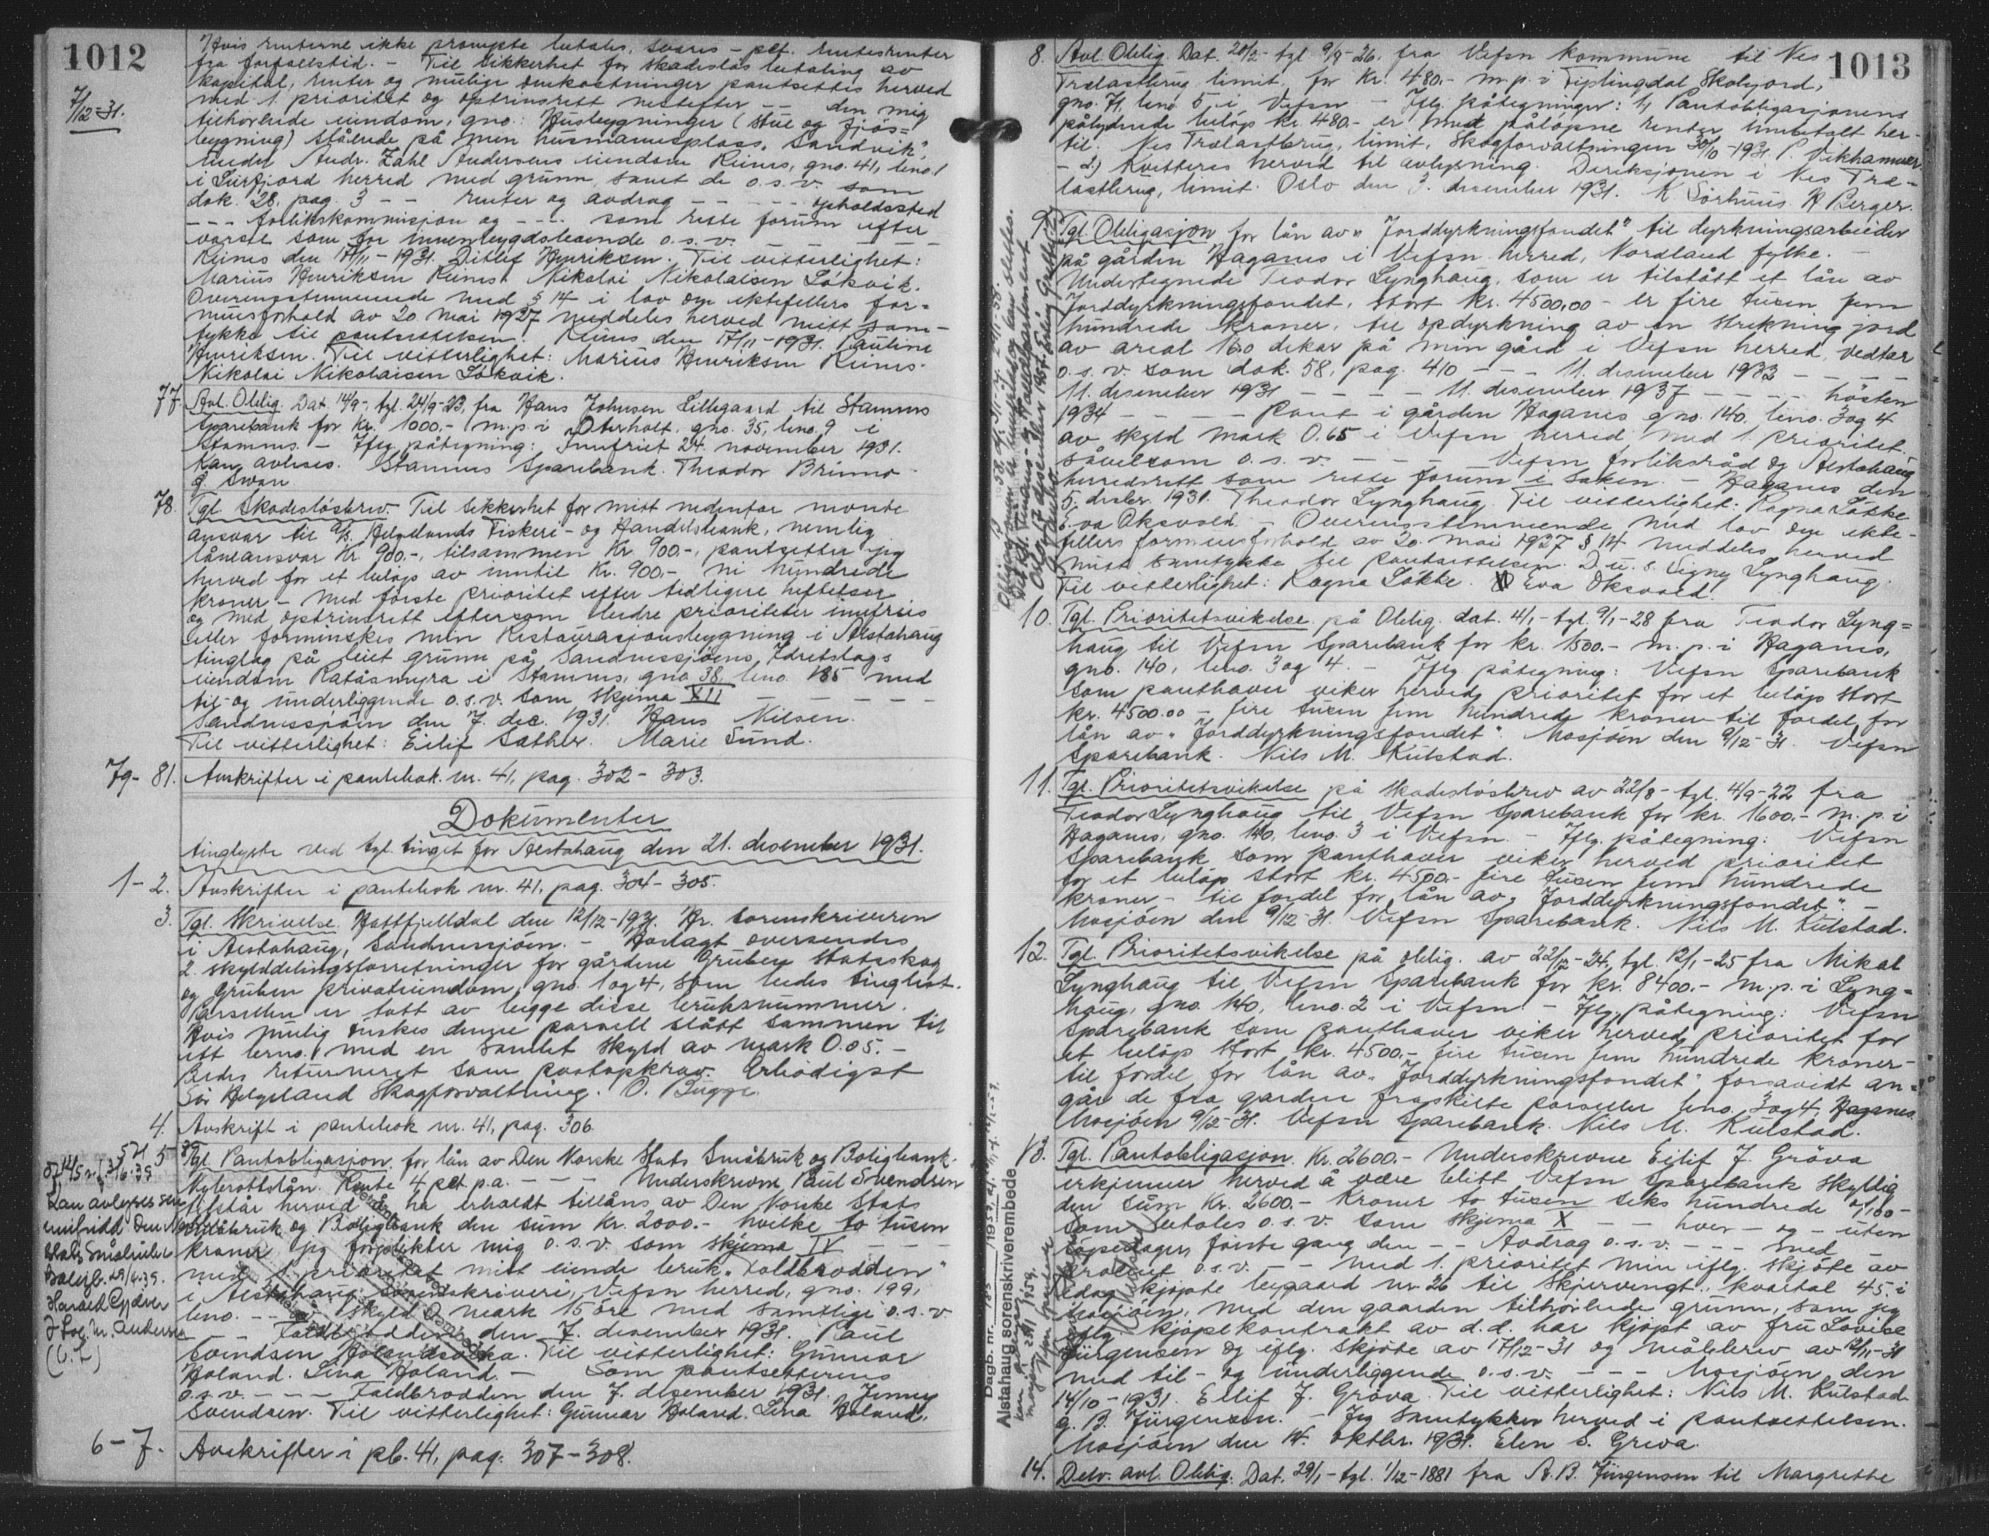 1012
7/12-31.
Hvis renterne ikke prompte betales, svares - pct. rentesrenter
fra forfaldstid. - Til sikkerhet for skadeslös betaling av
kapital, renter og mulige omkostninger pantsettes herved
med 1 prioritet og optrinsrett nestefter -- den mig
tilhörende eiendom, gno: Husbygninger (stue og fjös=
bygning) stående på min husmannsplass "Sandvik",
under Andr. Zahl Andersens eiendom Reines, gno. 41, bno. 1
i Leirfjord herred med grunn, samt de o.s.v. som
dok. 28, pag. 3 -- renter og avdrag ----- opholdssted
--- forlikskommisjon og ---- som rette forum efter
varsel som for innenbygdsboende o.s.v.
Reines den 17/11-1931. Ditlef Henriksen. Til vitterlighet:
Marius Henriksen Reines. Nikolai Nikolaisen Lökvik.
Overensstemmende med § 14 i lov om ektefellers for=
muesforhold av 20 mai 1927 meddeles herved mitt sam-
tykke til pantsettelsen. Reines den 17/11-1931. Pauline
Henriksen. Til vitterlighet: Marius Henriksen Reines.
Nikolai Nikolaisen Lökvik.
77 Avl. Oblig. Dat. 14/9- tgl. 24/9-23, fra Hans Johnsen Lillegaard til Stamnes
Sparebank for kr. 1000.- m.p. i Oterholt, gno. 35, bno. 9 i
Stamnes. - Iflg. påtegning: Innfriet 24. november 1931.
Kan avleses. Stamnes Sparebank. Theodor Brinno
J Swan
78. Tgl. Skadeslösbrev. Til sikkerhet for mitt nedenfor nevnte
ansvar til A/S Helgelands Fiskeri- og Handelsbank, nemlig
låneansvar Kr 900.-, tilsammen Kr. 900.-, pantsetter jeg
herved for et belöp av inntil Kr. 900.- ni hundrede
kroner - med förste prioritet efter tidligere heftelser
og med optrinsrett eftersom bedre prioriteter innfries
eller forminskes min Restaurasjonsbygning i Alstahaug
tinglag på leiet grunn på Sandnessjöens Idretslags
eiendom Ratåsmyra i Stamnes, gno 38, bno. 185 med
til- og underliggende o.s.v. som skjema XII
Sandnessjöen den 7. dec. 1931. Hans Nilsen.
Til vitterlighet: Eilif Sæther. Marie Sund.
79- 81. Avskrifter i pantebok nr. 41, pag. 302 - 303.
Dokumenter
tinglyste ved tgl. tinget for Alstahaug den 21. desember 1931.
1-2. Avskrifter i pantebok nr. 41, pag. 304 - 305.
3. Tgl. Skrivelse. Hattfjelldal den 12/12-1931. Hr. Sorenskriveren
i Alstahaug, Sandnessjöen. - Vedlagt oversendes
2 skylddelingsforretninger for gårdene Gruben statsskog
og Gruben privateiendom, gno. 1 og 4, som bedes tinglest.
Parsellen er tatt av begge disse bruksnummer.
Hvis mulig önskes denne parsell slått sammen til
ett brno. med en samlet skyld av mark 0.05.-
Bedes returneret som postopkrav. Erbödigst
Sör Helgeland Skogforvaltning. O. Bugge.
4. Avskrift i pantebok nr. 41, pag. 306
5 Tgl. Pantobligasjon for lån av Den Norske Stats Småbruk og Boligbank.
Nybrottslån. Rente 4 pct p.a. --- Underskreven Paul Svendsen
tilstår herved å ha erholdt tillåns av Den Norske Stats
Småbruk og Boligbank den sum kr. 2000.- hvilke to tusen
kroner jeg forplikter mig o.s.v. som skjema IV
med 1 prioritet mitt eiende bruk "Foldbrodden"
i Alstahaug sorenskriveri, Vefsn herred, gno. 199,
bno. --- skyld 0 mark 15 öre med samtlige o.s.v
-- Foldbrodden den 7. desember 1931. Paul
Svendsen Holandsvika. Til vitterlighet: Gunnar
Holand. Lina Holand. - Som pantsetterens
o.s.v. --- Foldbrodden den 7. desember 1931. Jenny
Svendsen. Til vitterlighet: Gunnar Holand. Lina Holand.
Kan avlyses
innfridd Den
Stats Småbruk
Boligb. 29/4.39.
6-7. Avskrifter i pb. 41, pag. 307-308.
1013
8. Avl. Oblig. Dat. 20/2- tgl. 9/9-26, fra Vefsn kommune til Nes
Trælastbrug limit. for Kr. 480.- m.p. i Fiplingdal Skolejord,
gno. 71, bno 5 i Vefsn - Iflg. påtegninger: 1, Pantobligasjonens
pålydende belöp kr 480.- er med pålöpne renter innbetalt her-
til. Nes Trælastbrug, limit. Skogforvaltningen 30/10-1931. P. Vikhammer
- 2) Kvitteres herved til avlysning. Direksjonen i Nes Træ-
lastbrug, limit. Oslo den 3. desember 1931. K Sörhuus. H Berger.
9. Tgl. Obligasjon for lån av "Jorddyrkningsfondet" til dyrkningsarbeider
på gården Haganes i Vefsn herred, Nordland fylke. -
Undertegnede Teodor Lynghaug, som er tilstått et lån av
Jorddyrkningsfondet, stort kr. 4500,00 - er fire tusen fem
hundrede kroner, til opdyrkning av en strekning jord
av areal 16.0 dekar på min gård i Vefsn herred, vedtar
o.s.v. som dok. 58, pag. 410 --- 11. desember 1932 ----
11. desember 1931 ---- 11. desember 1937 ---- hösten
1934 ---- Pant i gården Haganes gno. 140, bno. 3 og 4
av skyld mark 0.65 i Vefsn herred med 1. prioritet.
såvelsom o.s.v. ---- Vefsn forliksråd og Alstahaug
herredsrett som rette forum i saken. - Haganes den
5. desbr. 1931. Theodor Lynghaug. Til vitterlighet: Ragna Løkke
Eva Oksvold. - Overensstemmende med lov om ekte-
fellers formuesforhold av 20. mai 1927 § 14 meddeles herved
mitt samtykke til pantsettelsen. D.u.s. Signy Lynghaug.
Til vitterlighet: Ragna Løkke. Eva Oksvold.
10. Tgl. Prioritetsvikelse på Oblig. dat. 4/1- tgl. 9/1-28 fra Teodor Lyng=
haug til Vefsn Sparebank for kr. 1500.- m.p. i Haganes,
gno. 140, bno. 3 og 4. - Iflg påtegning: Vefsn Sparebank
som panthaver viker herved prioritet for et belöp stort
kr. 4500.00 - fire tusen fem hundrede kroner til fordel for
lån av "Jorddyrkningsfondet". Mosjöen den 9/12-31. Vefsn
Sparebank. Nils M. Kulstad.
11. Tgl. Prioritetsvikelse på Skadeslösbrev av 22/8- tgl. 4/9-22 fra
Teodor Lynghaug til Vefsn Sparebank for kr. 1600.- m.p. i
Haganes, gno. 140, bno. 3 i Vefsn - Iflg. påtegning: Vefsn
Sparebank som panthaver viker herved prioritet
for et belöp stort kr. 4500.- fire tusen fem hundrede
kroner - til fordel for lån av "Jorddyrkningsfondet" -
Mosjöen den 9/12-31. Vefsn Sparebank. Nils M. Kulstad.
12. Tgl. Prioritetsvikelse på oblig. av 22/12-24, tgl. 12/1-25 fra Mikal
Lynghaug til Vefsn Sparebank for kr. 8400.- m.p. i Lyng=
haug, gno. 140, bno. 2 i Vefsn - Iflg. påtegning: Vefsn
Sparebank som panthaver viker herved prioritet for
et belöp stort kr. 4500.- fire tusen fem hundrede kroner-
til fordel for lån av "Jorddyrkningsfondet", forsåvidt an=
går de fra gården fraskilte parseller bno. 3 og 4, Haganes
Mosjöen 9/12-31. Vefsn Sparebank. Nils M. Kulstad.
13. Tgl. Pantobligasjon. Kr. 2600.- Underskrevne Eilif J. Gröva
erkjenner herved å være blitt Vefsn Sparebank skyldig
den sum Kr. 2600.- Kroner to tusen seks hundrede 0/100-
som betales o.s.v. som skjema X -- hver - og - uten
löpedager, förste gang den -- Avdrag o.s.v. --- med
o.s.v. --- med 1. prioritet min iflg. skjöte av
idag kjöpte bygaard nr. 26 til Skjervengt. kvartal 45. i
Mosjöen, med den gaarden tilhörende grunn, som jeg
iflg. kjöpekontrakt av d.d. har kjöpt av fru Lovise
Jürgensen og iflg. skjöte av 17/12-31 og målebrev av 12/11-31
med til- og underliggende o.s.v. --- Mosjöen den
14/10-1931. Eilif J. Gröva. Til vitterlighet: Nils M. Kulstad.
G. B. Jürgensen. - Jeg samtykker herved i pantsettelsen.
Mosjöen den 14. oktbr. 1931. Elen S. Gröva.
14. Delv. avl. Oblig. Dat. 29/1- tgl. 1/12-1881 fra A. B. Jürgensen til Margrethe
Alstahaug sorenskriverembede